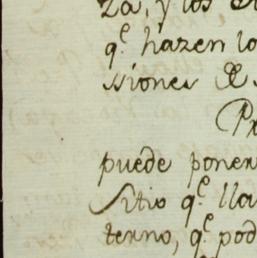 za, y los
q.^e hazen lo
ssiones &
puede poner
Sitio q.^e lla
terno, q.^e pod